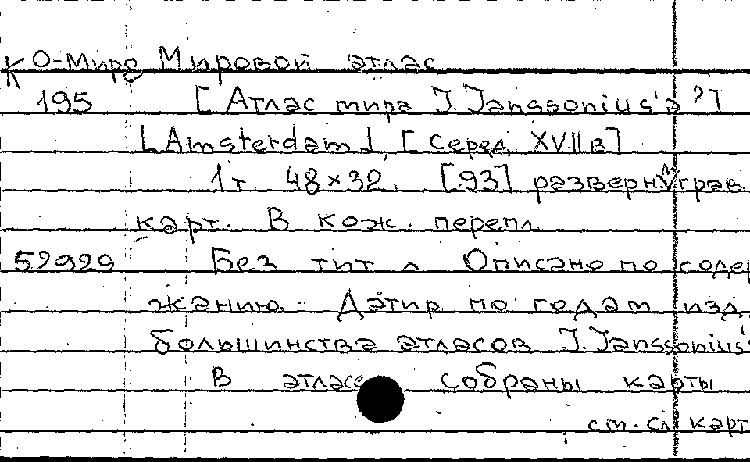 К О-Миро Мировой атлас
195 [Атлас мира J. Janssonius'а?]
[Amsterdam], [Серед. XVII в]
1т 48×32. [93] разверн. грав.
карт. В кож. перепл.
52929 Без тит л Описано по содер
жанию. Датир по годам изд.
большинства атласов J. Janssonius'
В атласе собраны карты
см. сл карт